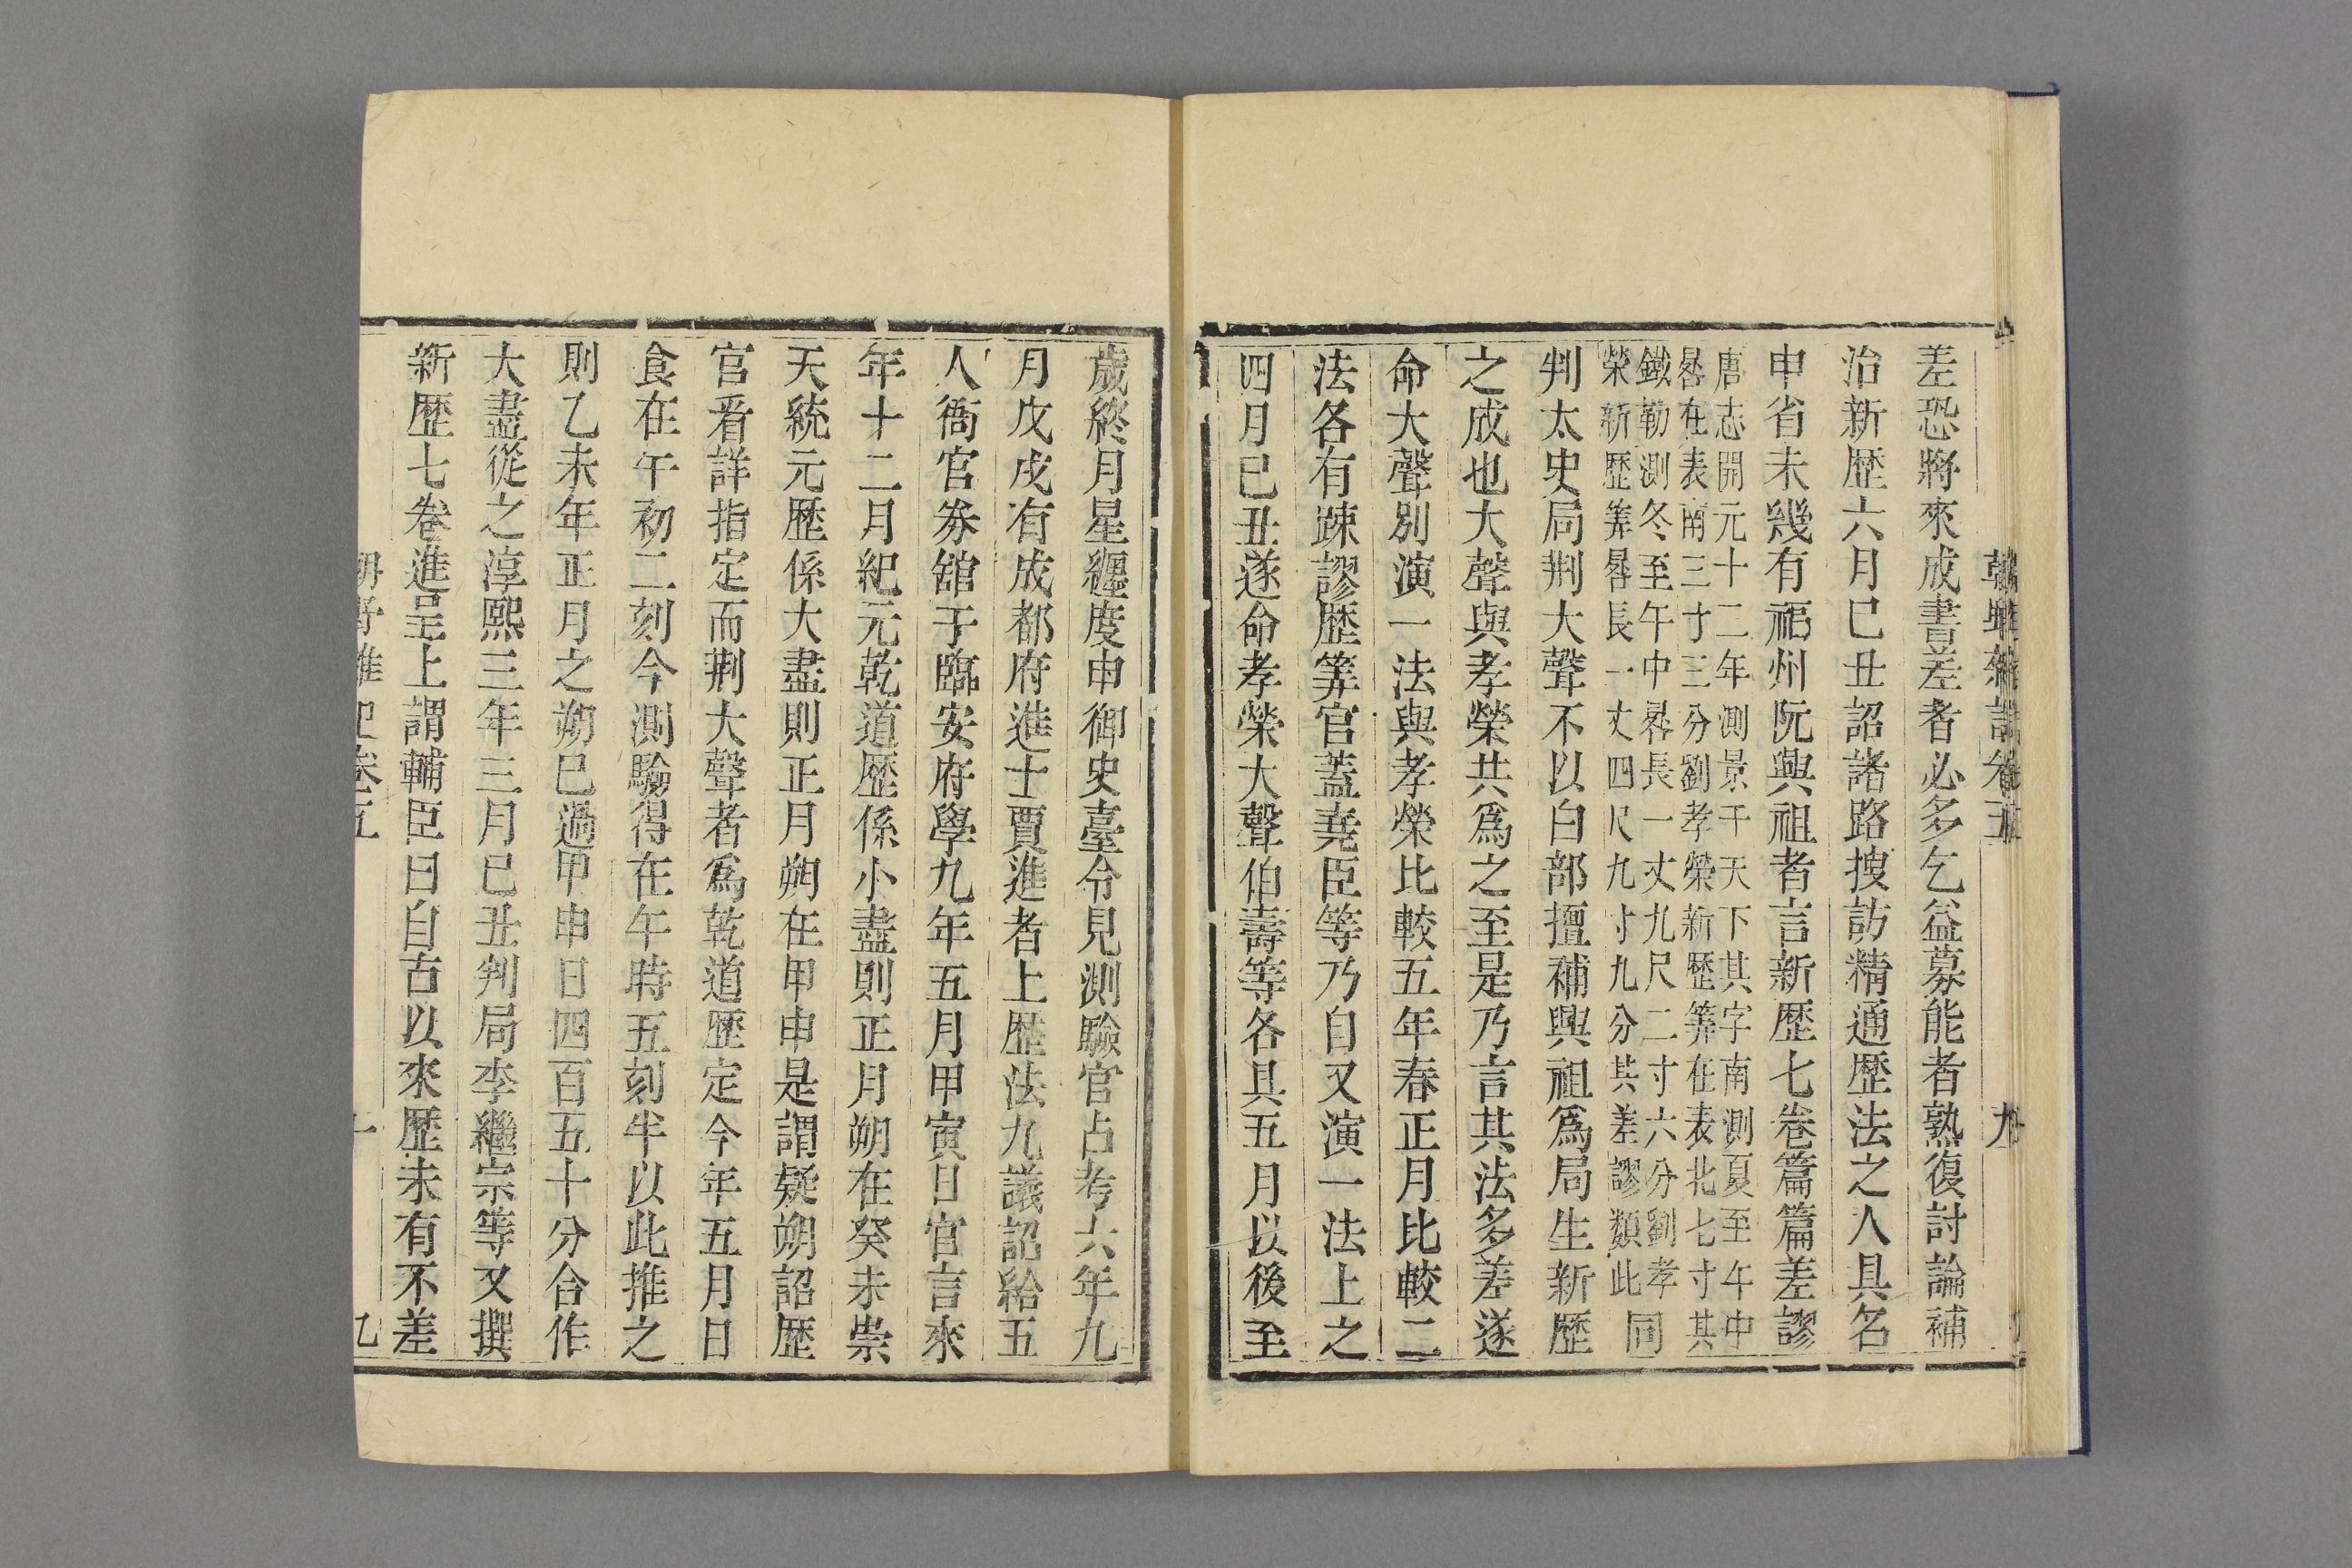 差恐將來成書差者必多乞益募能者熟復討論補
治新歴六月巳丑詔諸路搜訪精通歴法之人具名
申省未幾有福州阮興祖者言新歴七卷篇篇差謬
唐志開元十二年測景于天下其字南測夏至午中
晷在表南三寸三分劉孝榮新歴筭在表北七寸其
鐵勒測冬至午中晷長一丈九尺二寸六分劉孝
榮新歴筭晷長一丈四尺九寸九分其差謬類此同
判太史局荆大聲不以白部擅補興祖爲局生新歴
之成也大聲與孝榮共爲之至是乃言其法多差遂
命大聲別演一法與孝榮比較五年春正月比較二
法各有疎謬歴筭官蓋堯臣等乃自又演一法上之
四月巳丑遂命孝榮大聲伯壽等各具五月以後至
歲終月星纒度申御史臺令見測驗官占考六年九
月戊戌有成都府進士賈進者上歴法九議詔給五
人衙官劵舘于臨安府學九年五月甲寅日官言來
年十二月紀元乾道歴係小盡則正月朔在癸未崇
天統元歴係大盡則正月朔在甲申是謂疑朔詔歴
官看詳指定而荆大聲者爲乾道歴定今年五月日
食在午初二刻今測驗得在午時五刻半以此推之
則乙未年正月之朔巳過甲申日四百五十分合作
大盡從之淳熙三年三月巳丑判局李繼宗等又撰
新歴七卷進呈上謂輔臣曰自古以來歴未有不差